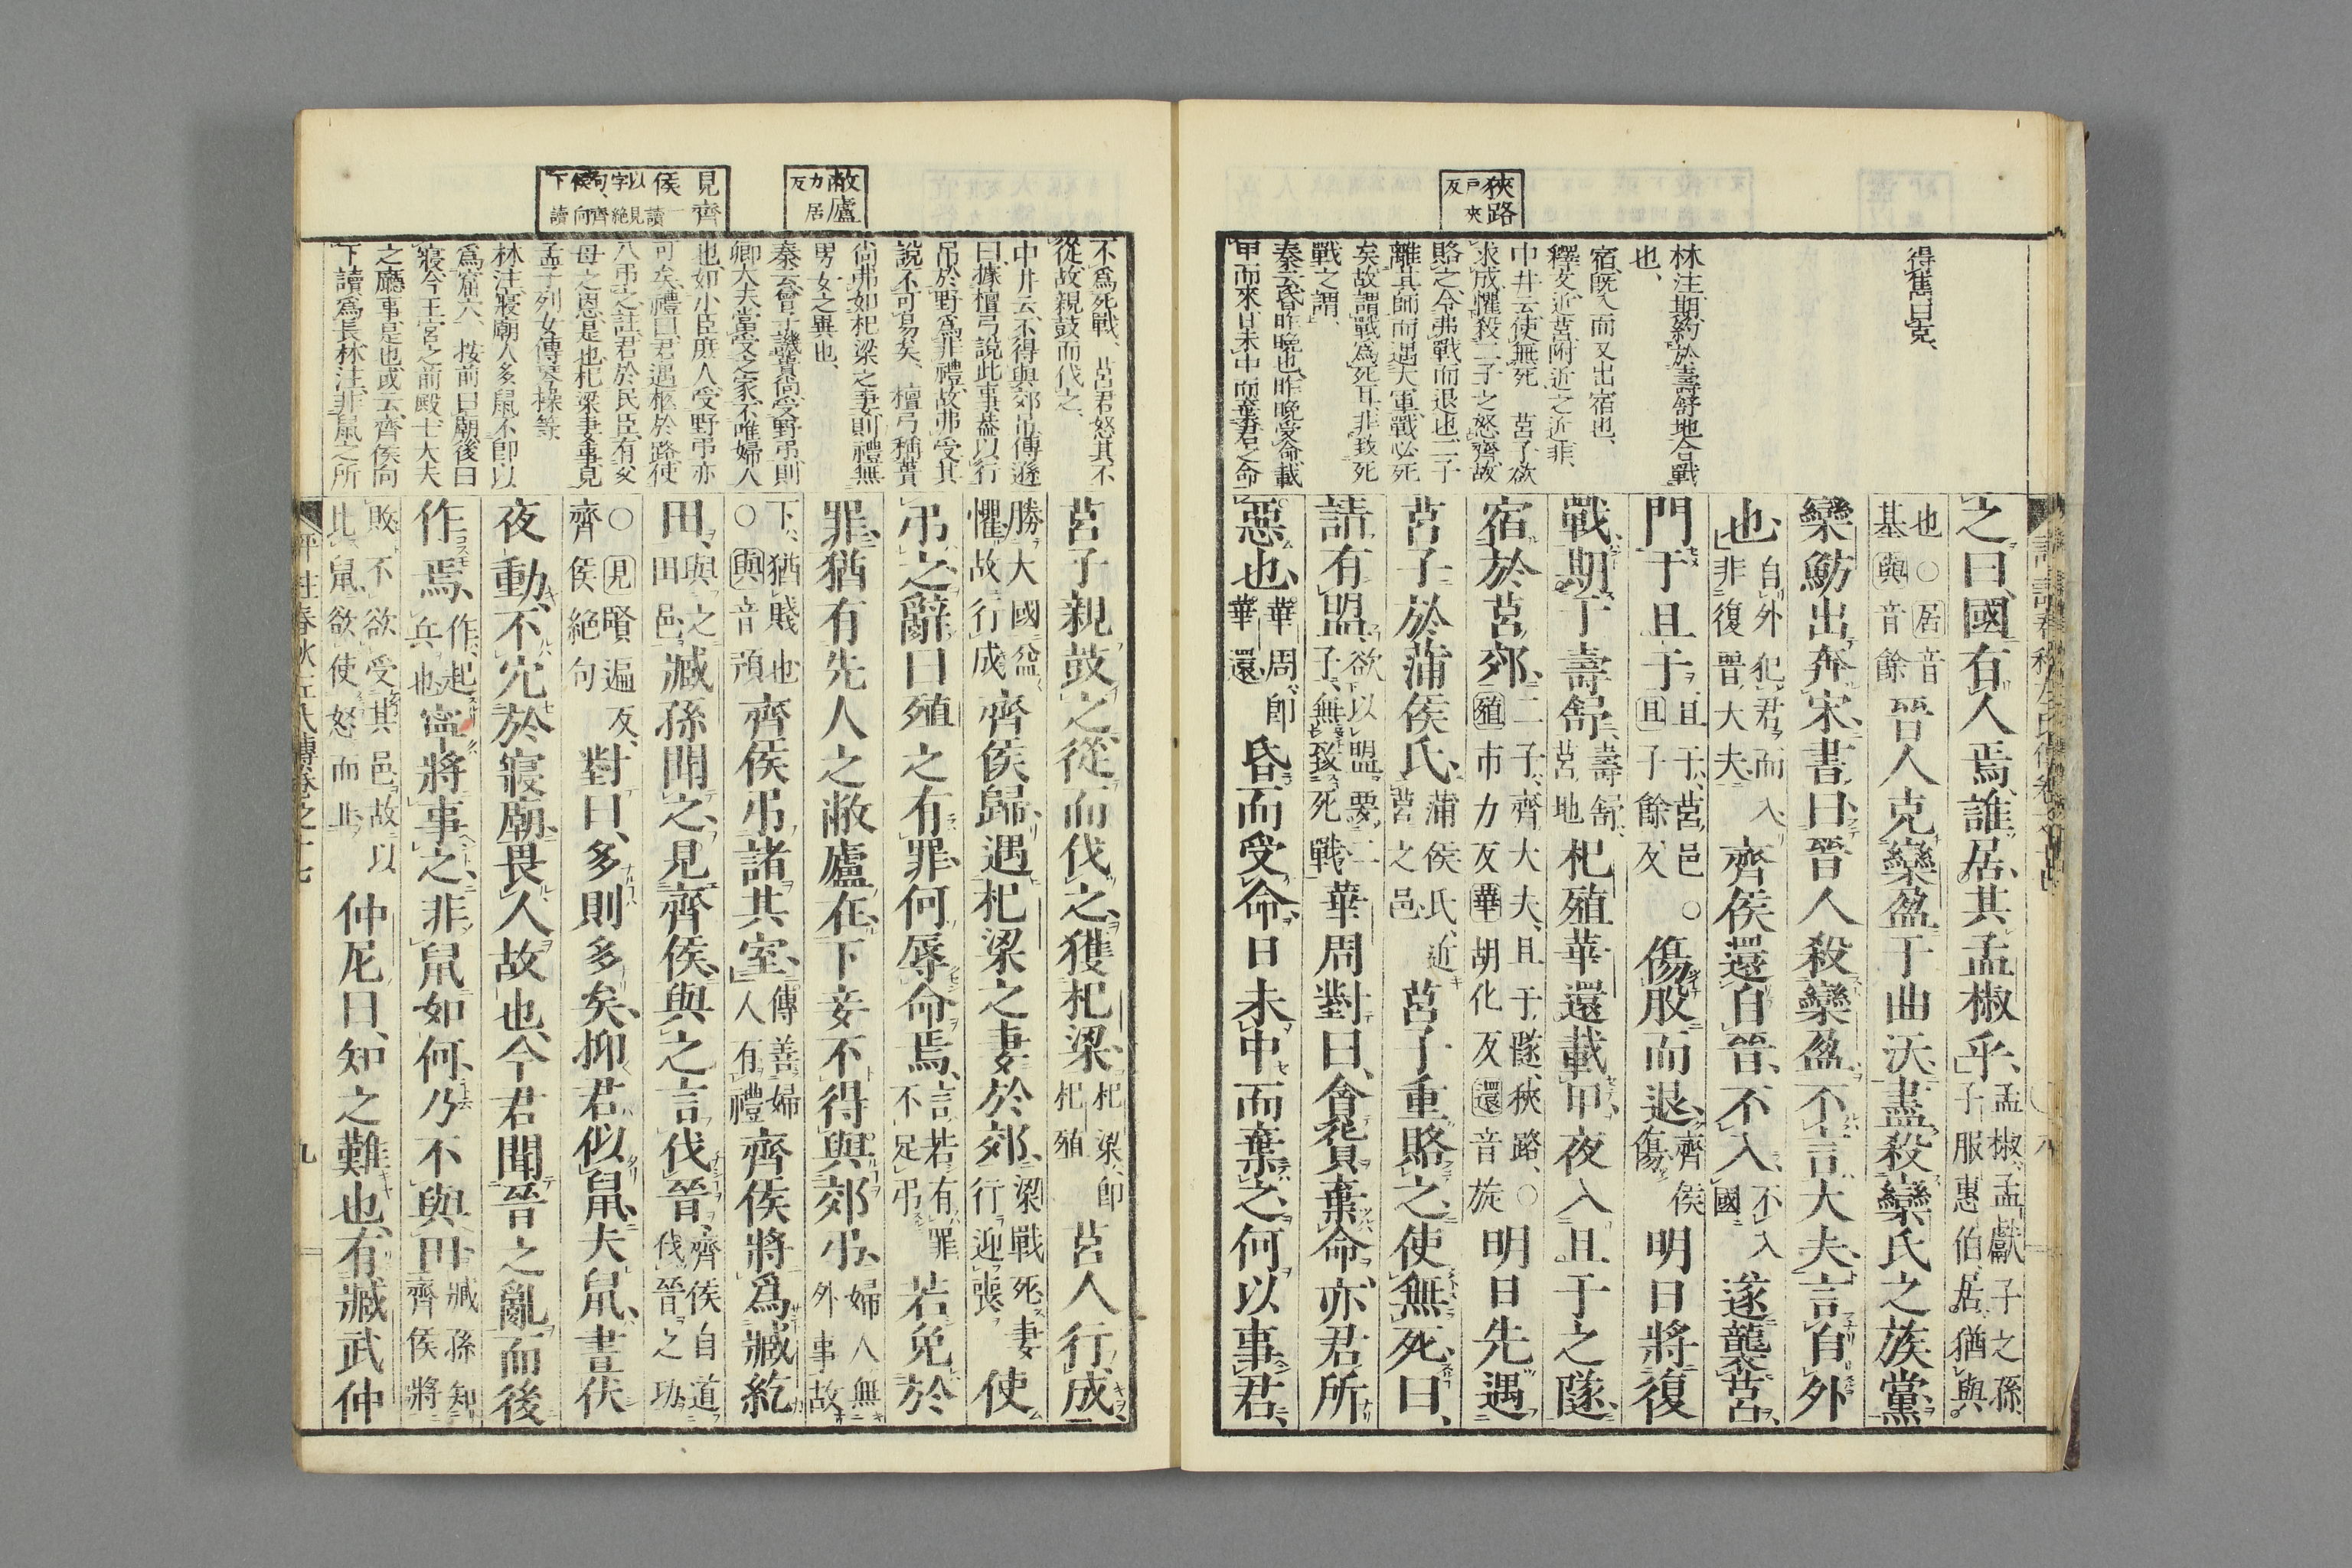 狹路
戶夾
反
得雋曰克、
林注、期、約於壽舒地合戰
也、
宿、既入而又出宿也、
釋文、近莒、附近之近、非、
中井云、使無死　莒子欲
求成、懼殺二子之怒齊、故
賂之、令弗戰而退也、二子
離其師而遇大軍、戰必死
矣、故謂戰爲死耳、非致死
戰之謂、
秦云、昏昨晚也、昨晚受命載
甲而來、日未中而棄君之命、
之曰、國有人焉、誰居、其孟椒乎、孟椒、孟獻子之孫、子服惠伯、居、猶與
也○居音基與音餘晉人克欒盈于曲沃、盡殺欒氏之族黨、
欒魴出奔宋、書曰、晉人殺欒盈、不言大夫、言自外
也、自外犯君而入、非復晉大夫、齊侯還自晉、不入、不入國遂襲莒、
門于且于、且于、莒邑○且子餘反傷股而退、齊侯傷明日將復
戰、期于壽舒、壽舒、莒地杞殖華還載甲、夜入且于之隧、
宿於莒郊、二子、齊大夫、且于隧、狹路、○殖市力反華胡化反還音旋明日先遇
莒子於蒲侯氏、蒲侯氏、近莒之邑、莒子重賂之、使無死、曰、
請有盟、欲以盟要二子、無致死戰華周對曰、貪貨棄命、亦君所
惡也、華周、卽華還、昏而受命、日未中而棄之、何以事君、
八
敝廬
力居
反
見齊
侯一讀
以見字絕句、齊侯向下讀
不爲死戰、莒君怒其不
從、故親鼓而伐之、
中井云、不得與郊弔、傳遜
曰、據檀弓說此事、葢以行
弔於野爲非禮、故弗受、其
說不可易矣、檀弓稱蕢
尙弗如杞梁之妻、則禮無
男女之異也、
秦云、曾子譏蕢尙受野弔、則
卿大夫當受之家、不唯婦人
也、如小臣庶人、受野弔亦
可矣、禮曰、君遇柩於路、使
人弔之、註、君於民臣、有父
母之恩、是也、杞梁妻事見
孟子列女傳琴操等、
林注、寢廟人多、鼠不卽以
爲窟穴、按前曰廟、後曰
寢、今王宮之前殿、士大夫
之廳事是也、或云、齊侯向
下讀爲長、林注、非鼠之所
莒子親鼓之、從而伐之、獲杞梁、杞梁、卽杞殖莒人行成、
勝大國益懼、故行成齊侯歸、遇杞梁之妻於郊、梁戰死、妻行迎喪、使
弔之、辭曰、殖之有罪、何辱命焉、言若有罪、不足弔若免於
罪、猶有先人之敝廬在、下妾不得與郊弔、婦人無外事故
下、猶賤也○與音預齊侯弔諸其室、傳善婦人有禮齊侯將爲臧紇
田、與之田邑、臧孫聞之、見齊侯、與之言伐晉、齊侯自道伐晉之功、
○見賢遍反、齊侯絕句對曰、多則多矣、抑君似鼠、夫鼠、晝伏
夜動、不穴於寢廟、畏人故也、今君聞晉之亂而後
作焉、作、起兵也寧將事之、非鼠如何、乃不與田、臧孫知齊侯將
敗、不欲受其邑、故以比鼠、欲使怒而止仲尼曰、知之難也、有臧武仲
評註春秋左氏傳卷之十七
九